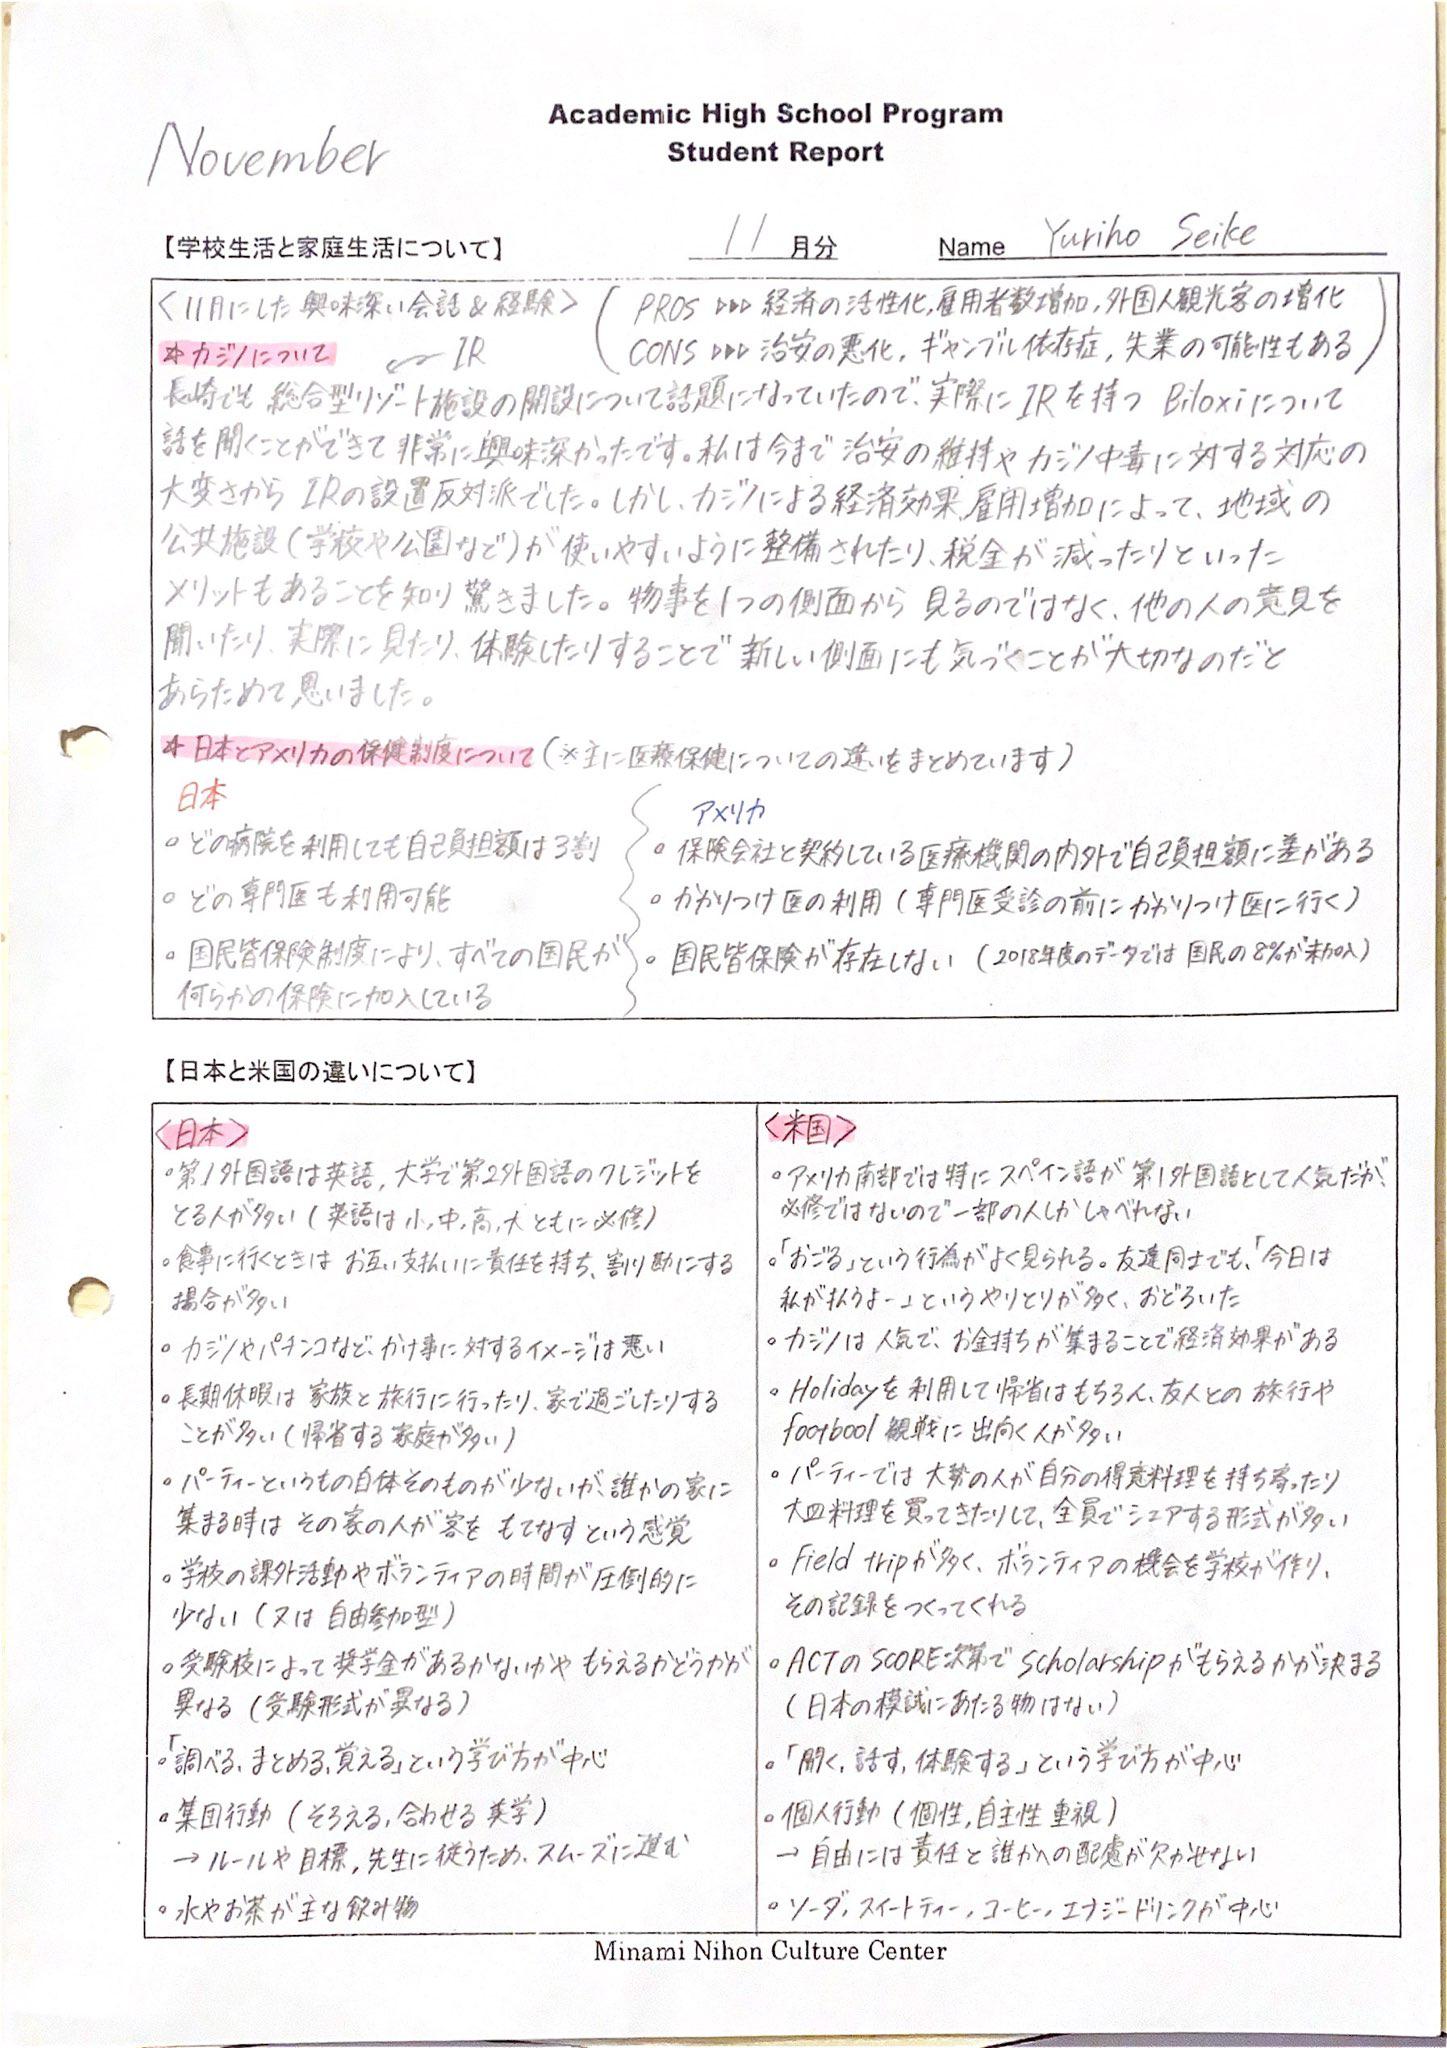 Academic High School Program
Student Report
November
【学校生活と家庭生活について】
11 月分
Name Yuriho Seike
〈11月にした興味深い会話&経験〉
(PROS ▷▷▷ 経済の活性化,雇用者数増加,外国人観光客の増化
CONS ▷▷▷ 治安の悪化,ギャンブル依存症,失業の可能性もある)
*カジノについて
IR
長崎でも総合型リゾート施設の開設について話題になっていたので、実際にIRを持つ Biloxiについて
話を聞くことができて非常に興味深かったです。私は今まで治安の維持やカジノ中毒に対する対応の
大変さからIRの設置反対派でした。しかし、カジノによる経済効果,雇用増加によって、地域の
公共施設(学校や公園など)が使いやすいように整備されたり、税金が減ったりといった
メリットもあることを知り驚きました。物事を1つの側面から見るのではなく、他の人の意見を
聞いたり、実際に見たり、体験したりすることで新しい側面にも気づくことが大切なのだと
あらためて思いました。
*日本とアメリカの保健制度について(※主に医療保健についての違いをまとめています)
日本
◦どの病院を利用しても自己負担額は3割
◦どの専門医も利用可能
◦国民皆保険制度により、すべての国民が
何らかの保険に加入している
アメリカ
◦保険会社と契約している医療機関の内外で自己負担額に差がある
◦かかりつけ医の利用(専門医受診の前にかかりつけ医に行く)
◦国民皆保険が存在しない(2018年度のデータでは国民の8%が未加入)
【日本と米国の違いについて】
〈日本〉
◦第1外国語は英語,大学で第2外国語のクレジットを
とる人が多い(英語は小,中,高,大ともに必修)
◦食事に行くときはお互い支払いに責任を持ち、割り勘にする
場合が多い
◦カジノやパチンコなど、かけ事に対するイメージは悪い
◦長期休暇は家族と旅行に行ったり、家で過ごしたりする
ことが多い(帰省する家庭が多い)
◦パーティーというもの自体そのものが少ないが、誰かの家に
集まる時はその家の人が客をもてなすという感覚
◦学校の課外活動やボランティアの時間が圧倒的に
少ない(又は自由参加型)
◦受験校によって奨学金があるかないかやもらえるかどうかが
異なる(受験形式が異なる)
◦「調べる,まとめる,覚える」という学び方が中心
◦集団行動(そろえる,合わせる美学)
→ルールや目標,先生に従うため、スムーズに進む
◦水やお茶が主な飲み物
〈米国〉
◦アメリカ南部では特にスペイン語が第1外国語として人気だが、
必修ではないので一部の人しかしゃべれない
◦「おごる」という行為がよく見られる。友達同士でも、「今日は
私が払うよー」というやりとりが多く、おどろいた
◦カジノは人気で、お金持ちが集まることで経済効果がある
◦Holidayを利用して帰省はもちろん、友人との旅行や
football観戦に出向く人が多い
◦パーティーでは大勢の人が自分の得意料理を持ち寄ったり
大皿料理を買ってきたりして、全員でシェアする形式が多い
◦Field tripが多く、ボランティアの機会を学校が作り、
その記録をつくってくれる
◦ACTのSCORE次第でScholarshipがもらえるかが決まる
(日本の模試にあたる物はない)
◦「聞く,話す,体験する」という学び方が中心
◦個人行動(個性,自主性重視)
→自由には責任と誰かへの配慮が欠かせない
◦ソーダ,スイートティー,コーヒー,エナジードリンクが中心
Minami Nihon Culture Center